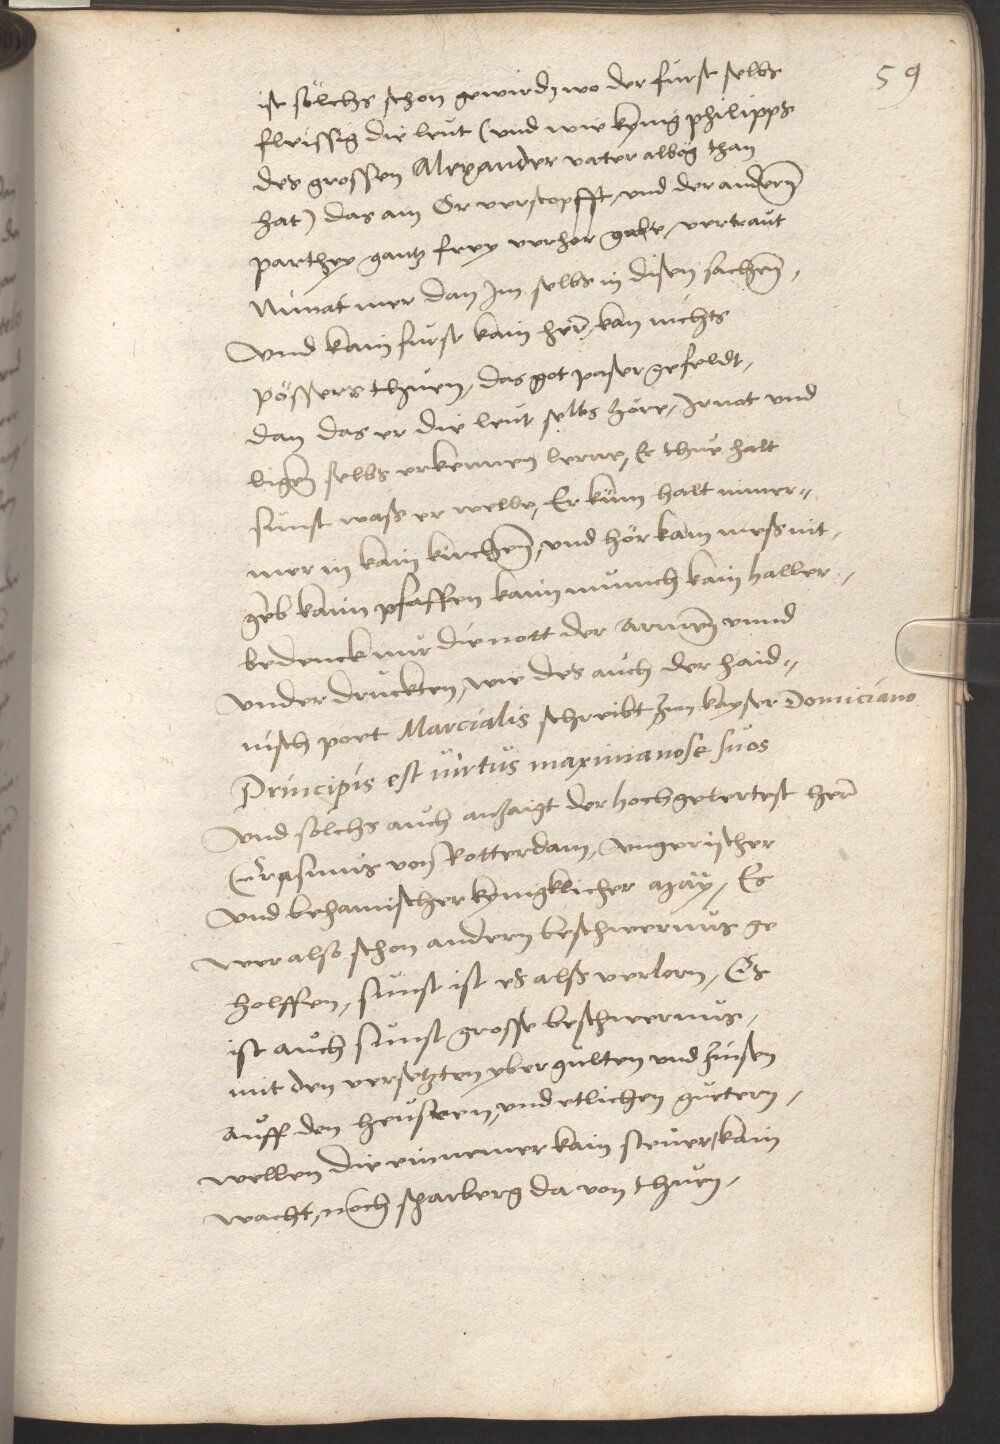 59
ist sölchs schon gewird, wo der fürst selbs
fleissig die leüt (und wie kÿnig philipps
des grossen Alexander vater albeg than
hat) das ain Or verstopfft, und der andern
parthey gantz frey verhör gabe, vertraüt
Nimät mer dan Jm selbs in disen sachen,
Und kain fürst kain her, kan nichts
pössers thüen, das got paser gefeldt,
dan das er die leüt selbs höre, Jr not und
ligen selbs erkennen lerne, Er thüe halt
sünst waß er welle, Er küm halt nimer=
mer in kain kirchen, und hör kain meß nit,
geb kaim pfaffen kaim münich kain haller,
bedenck nür die nott der Armen unnd
Underdrückten, wie des aüch der haid=
nisch poet Marcialis schreibt zum keyser Domiciano
Principis est uirtüs maxima nose süos
Und sölchs aüch anzaigt der hochgelertest her
Erasmüs von Rotterdam, Ungerischer
Und behamischer kÿnigklicher Mäÿ, Es
wer also schon andern beschwernüs ge
holffen, sünst ist es alß verlorn, Es
ist aüch sünst grosse beschwernüs,
mit den versetzten yber gülten und zinsen
aüff den heüsern, und etlichen güetern,
wellen die einnemer kain steüer, kain
wacht, noch scharberg da von thüen,